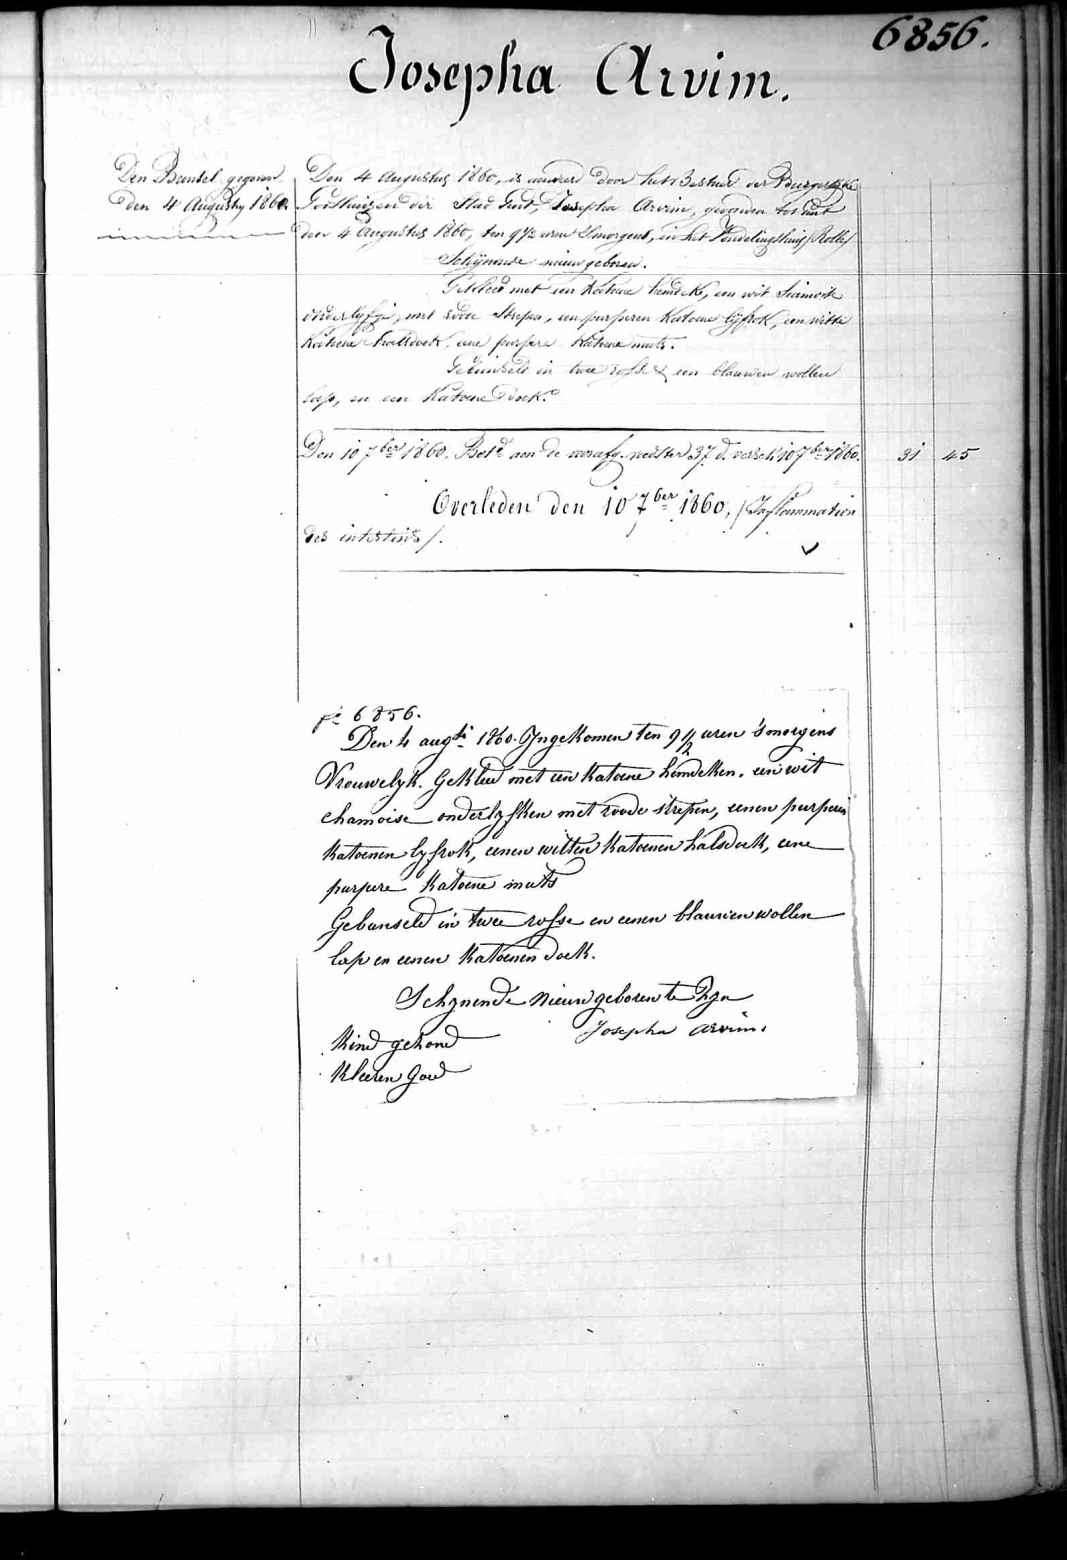 6856.
Josepha Arvim.
Den Bundel gegeven
den 4 Augusty 1860.
Den 4 Augustus 1860, is aanveerd door het Bestuur der Burgerlyke
Godshuizen der Stad Gent, Josepha Arvim, gevonden tot Gent
den 4 Augustus 1860, ten 9 1/2 uren Smorgens, in het Vondelingshuis /Rolle/
Schijnende nieuw geboren.
Gekleed met een Katoene hemdeke, een wit Siamoise
onderlyfje, met roode Strepen, een purperen Katoene lyfrok, een witte
Katoene halsdoek, eene purpere Katoene muts.
Gebunseld in twee rosse & een blauwen wollen
lap, en een Katoene Doek.
Den 10 7ber 1860. Bet.d aan de voedster 37 d. 10 7ber 1860. 31 45
Overleden den 10 7ber 1860, /Inflammation
des intestins/.
6856.
Den 4 augti 1860. Ingekomen ten 9 1/2 uren 'smorgens
Vrouwelyk. Gekleed met een katoene hemdeken, een wit
chamoise onderlyfken met roode strepen, eenen purperen
katoenen lyfrok, eenen witten katoenen halsdoek, eene
purpere katoene muts
Gebunseld in twee rosse en eenen blauwen wollen
lap en eenen katoenen doek.
Schynende nieuw geboren te Zyn
Josepha arvim.
Kind gezond
Kleeren goed